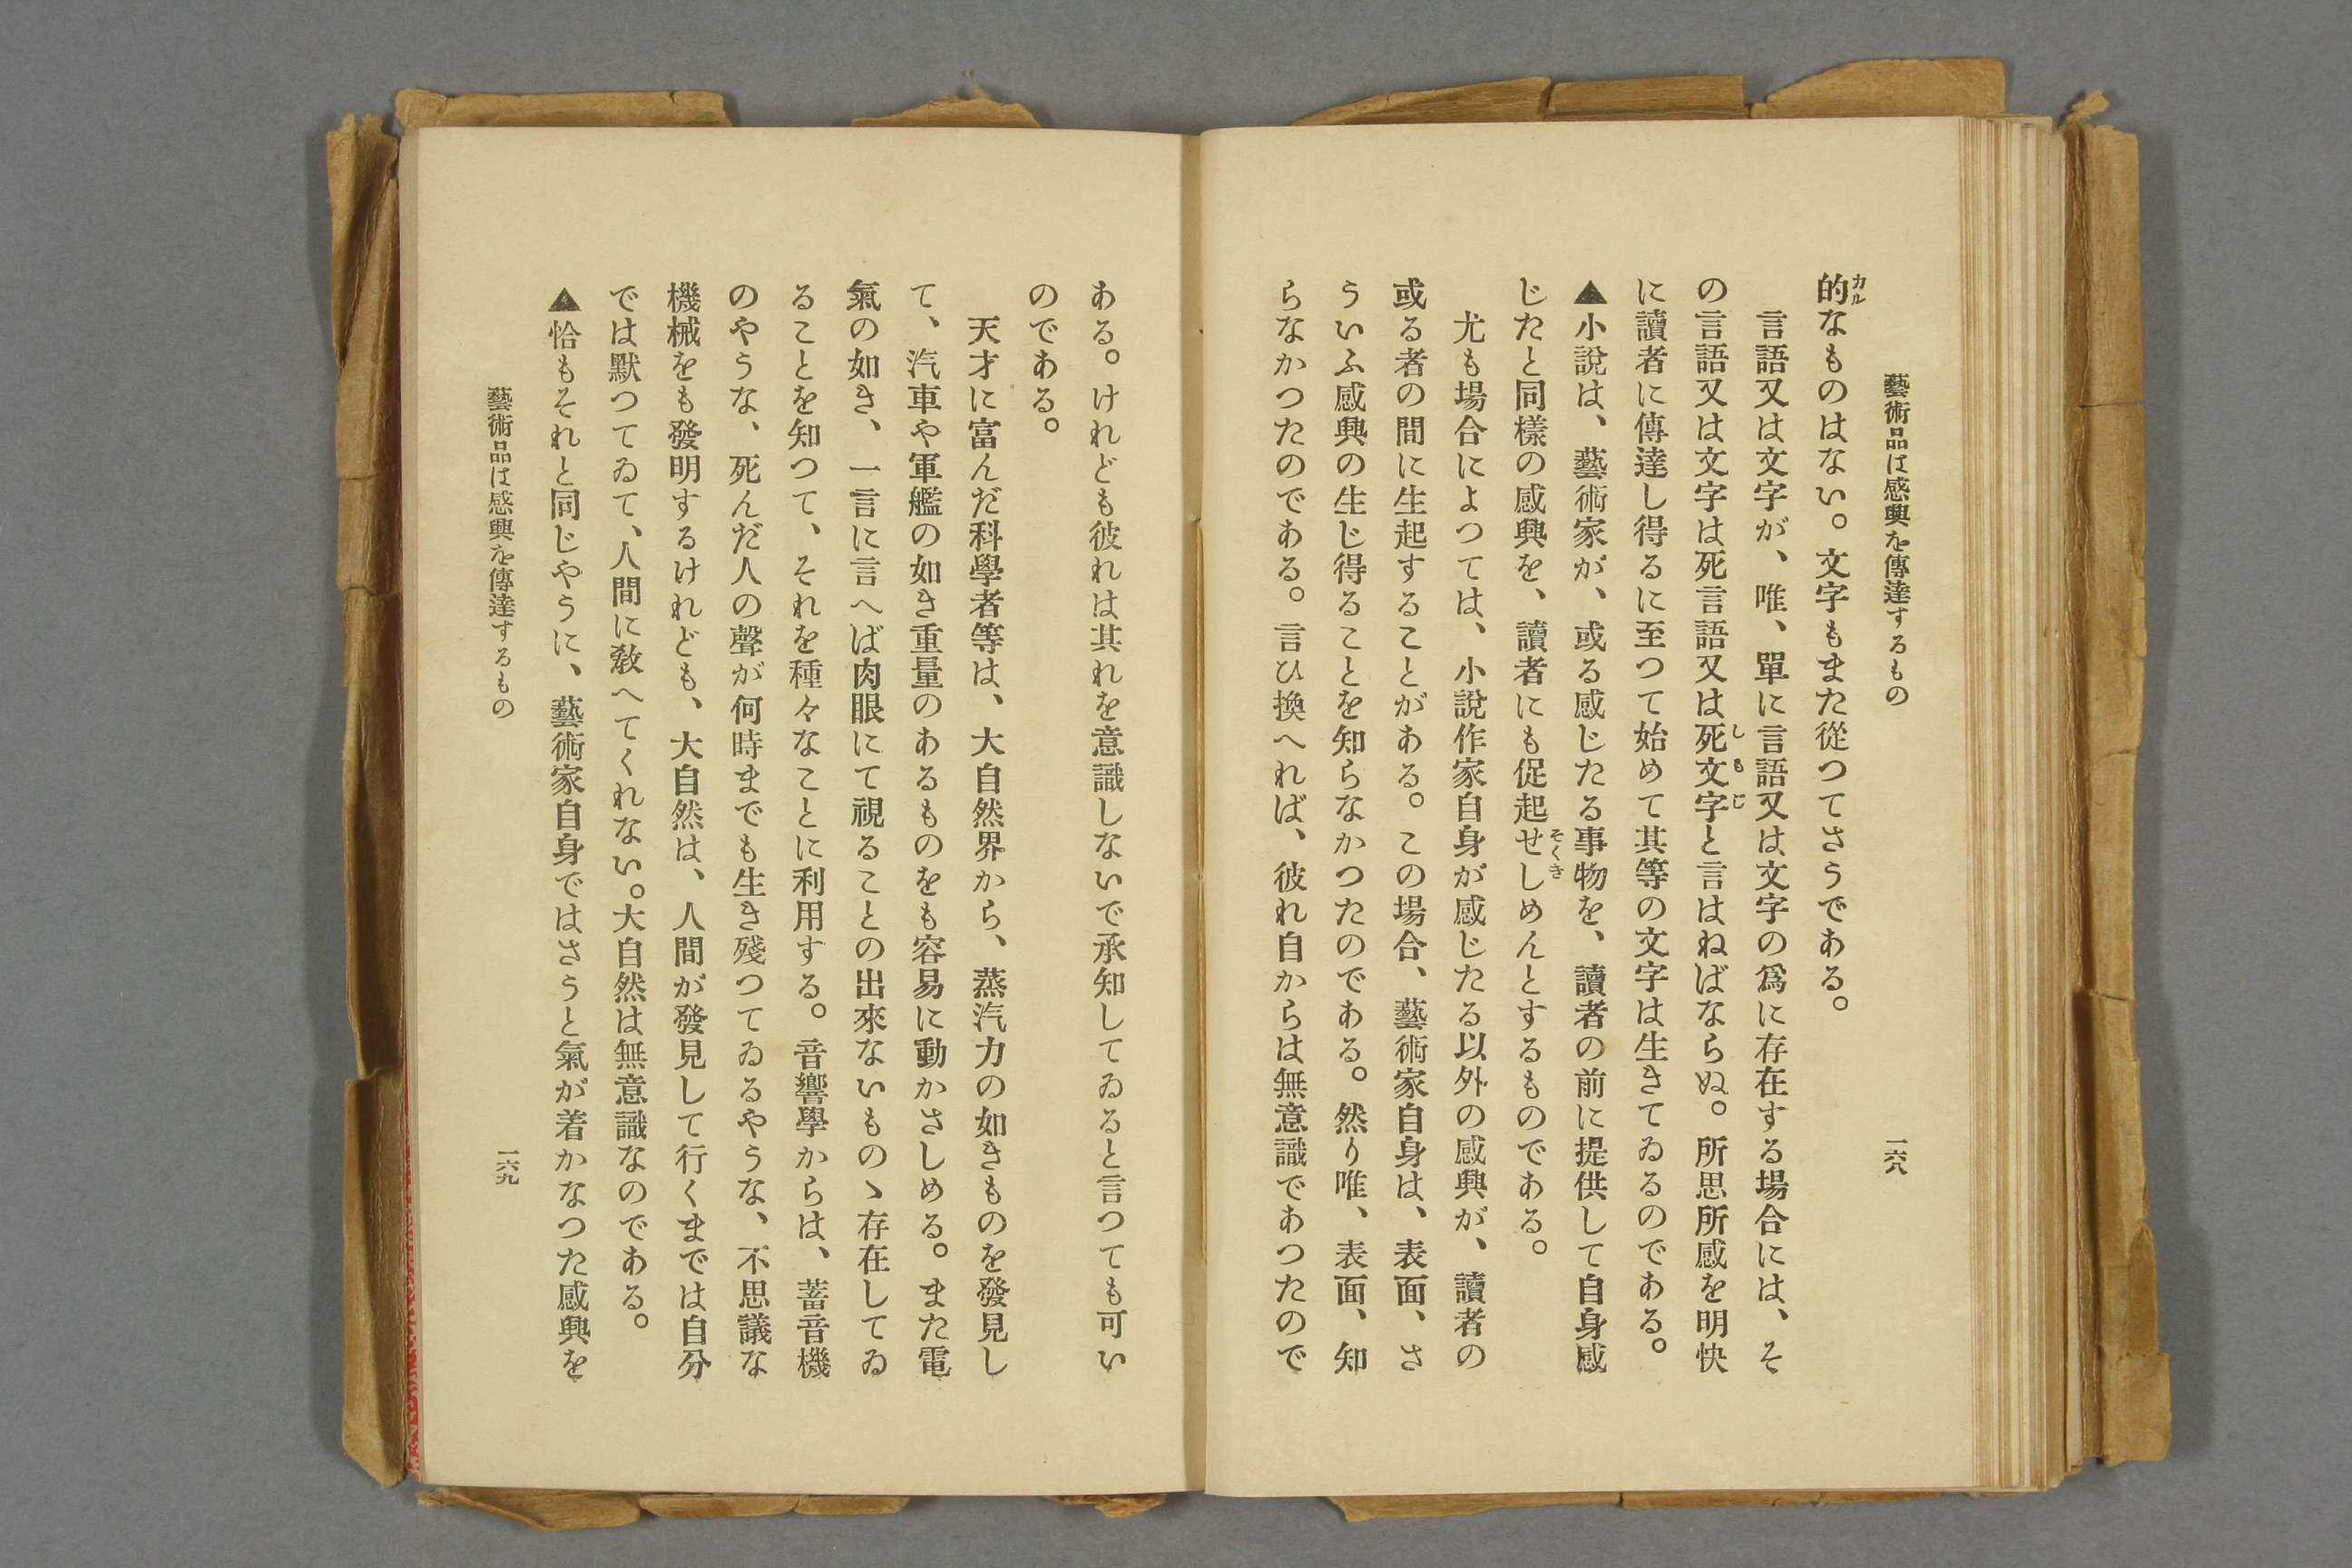 藝術品は感興を傳達するもの
一六八
的なものはない。文字もまた從つてさうである。
言語又は文字が、唯、單に言語又は文字の爲に存在する場合には、そ
の言語又は文字は死言語又は死文字と言はねばならぬ。所思所感を明快
に讀者に傳達し得るに至つて始めて其等の文字は生きてゐるのである。
▲小說は、藝術家が、或る感じたる事物を、讀者の前に提供して自身感
じたと同樣の感興を、讀者にも促起せしめんとするものである。
尤も場合によつては、小說作家自身が感じたる以外の感興が、讀者の
或る者の間に生起することがある。この場合、藝術家自身は、表面、さ
ういふ感興の生じ得ることを知らなかつたのである。然り唯、表面、知
らなかつたのである。言ひ換へれば、彼れ自からは無意識であつたので
ある。けれども彼れは其れを意識しないで承知してゐると言つても可い
のである。
天才に富んだ科學者等は、大自然界から、蒸汽力の如きものを發見し
て、汽車や軍艦の如き重量のあるものをも容易に動かさしめる。また電
氣の如き、一言に言へば肉眼にて視ることの出來ないものゝ存在してゐ
ることを知つて、それを種々なことに利用する。音響學からは、蓄音機
のやうな、死んだ人の聲が何時までも生き殘つてゐるやうな、不思議な
機械をも發明するけれども、大自然は、人間が發見して行くまでは自分
では默つてゐて、人間に敎へてくれない。大自然は無意識なのである。
▲恰もそれと同じやうに、藝術家自身ではさうと氣が着かなつた感興を
藝術品は感興を傳達するもの
一六九